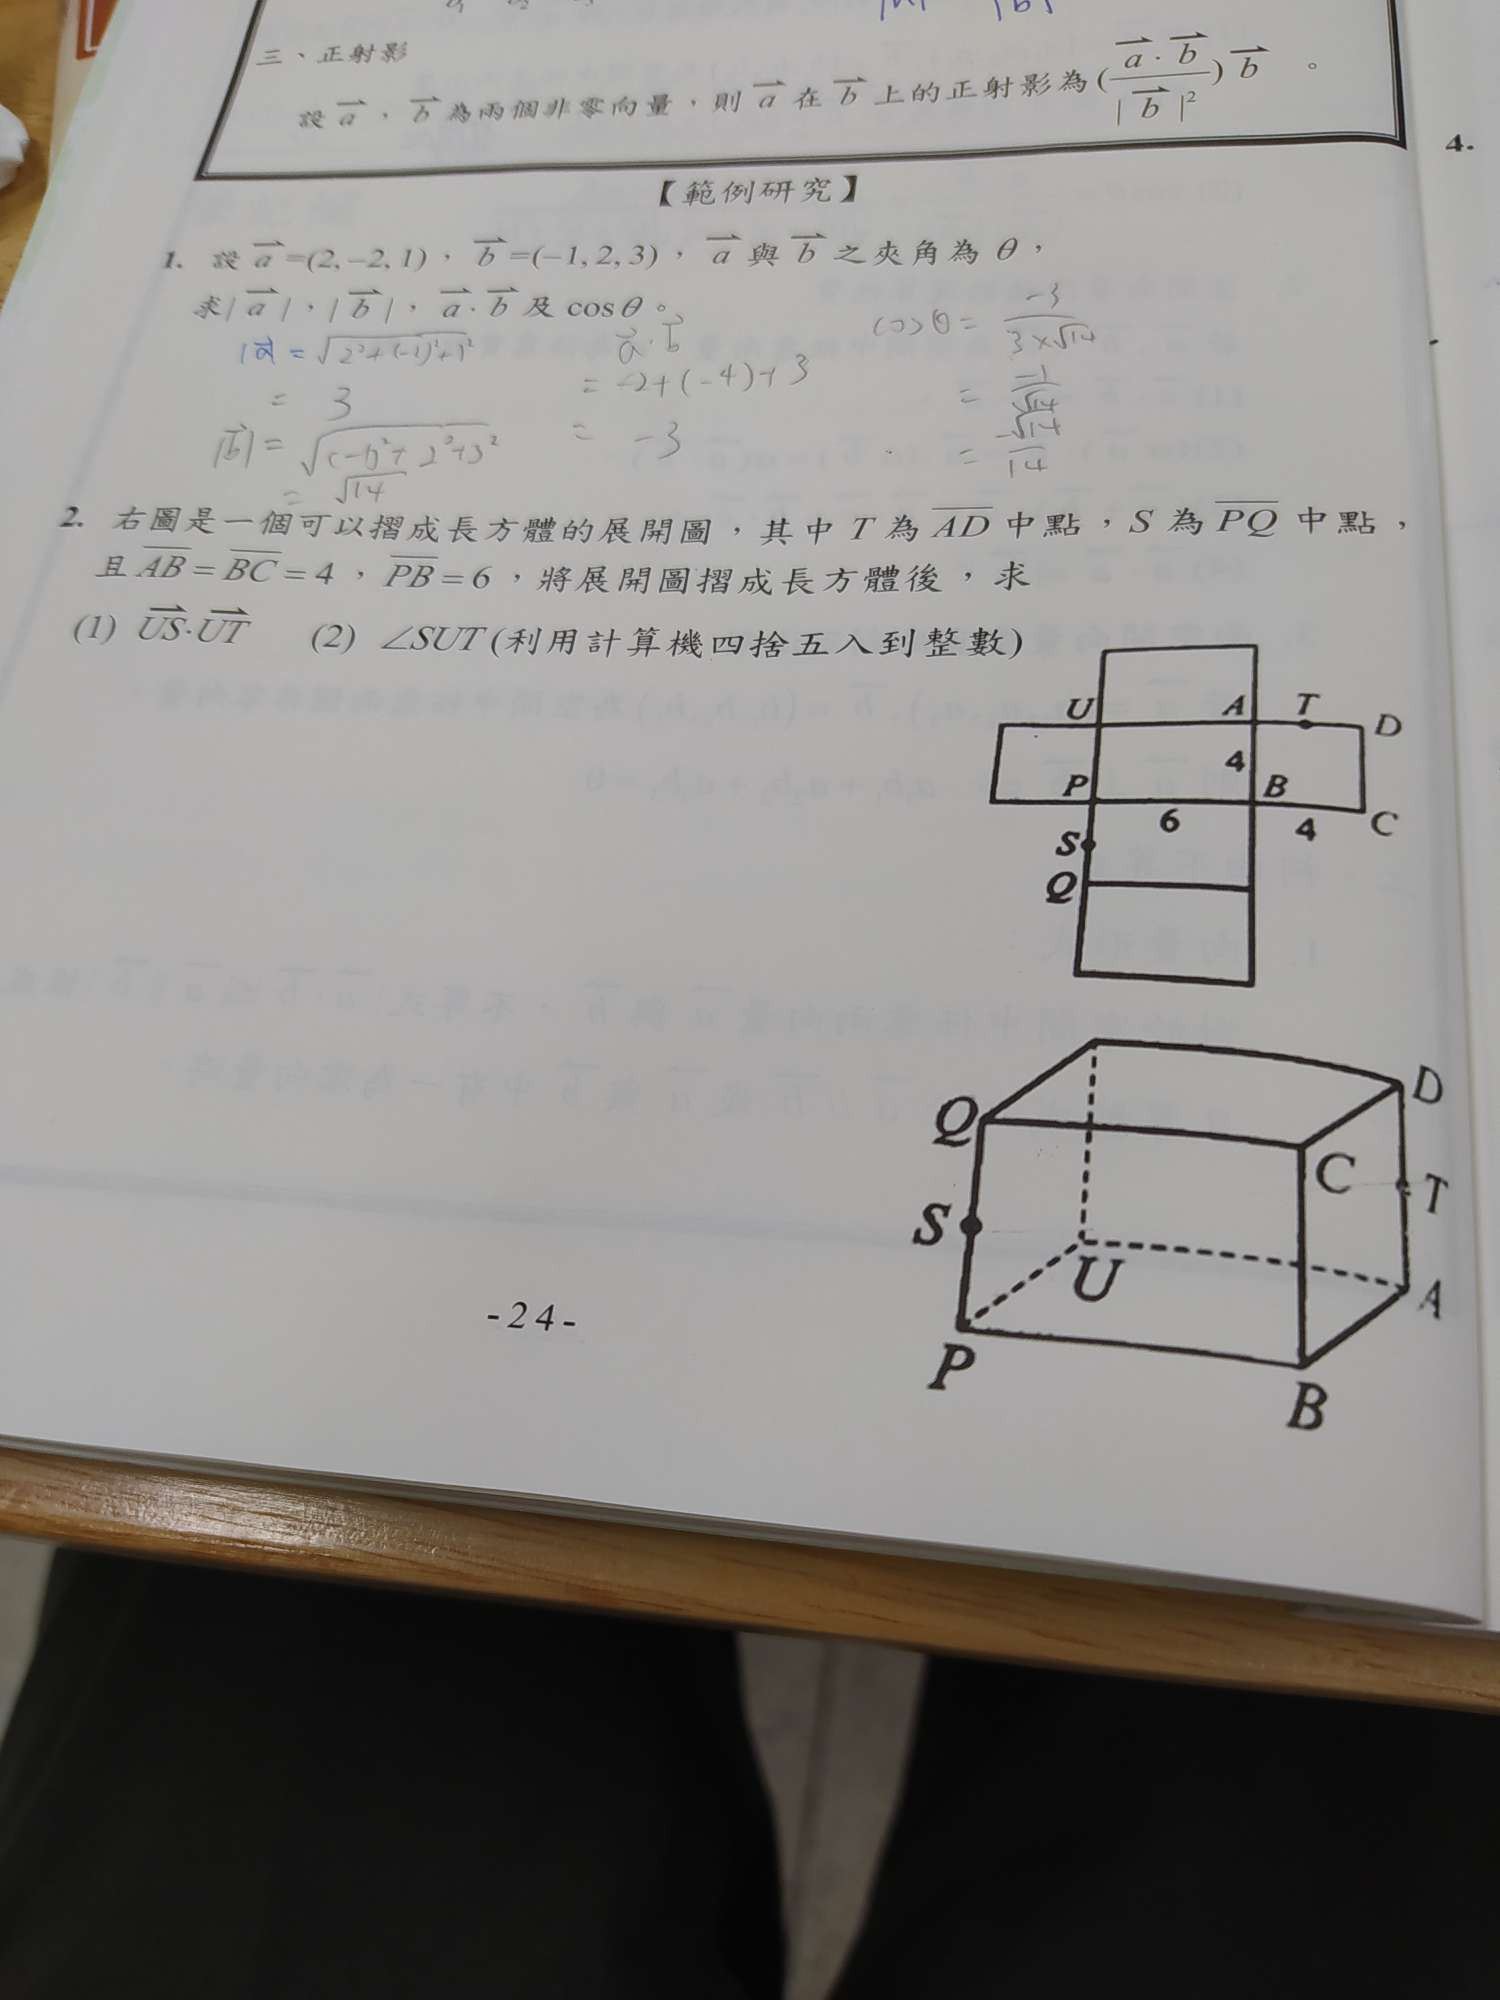 三、正射影
設 a，b 為兩個非零向量，則 a 在 b 上的正射影為 (a·b/|b|²) b。
4.
【範例研究】
1. 設 a=(2,−2,1)，b=(−1,2,3)，a 與 b 之夾角為 θ，
求|a|，|b|，a·b 及 cosθ。
|a| = √(2²+(-2)²+1²)
= 3
|b| = √((-1)²+2²+3²)
= √14
a·b
= -2+(-4)+3
= -3
cosθ = -3/(3×√14)
= -1/√14
= -√14/14
2. 右圖是一個可以摺成長方體的展開圖，其中 T 為 AD 中點，S 為 PQ 中點，
且 AB = BC = 4，PB = 6，將展開圖摺成長方體後，求
(1) US·UT (2) ∠SUT (利用計算機四捨五入到整數)
U A T D
4
P B
6 4 C
S
Q
D
Q
C T
S
U A
P
B
-24-